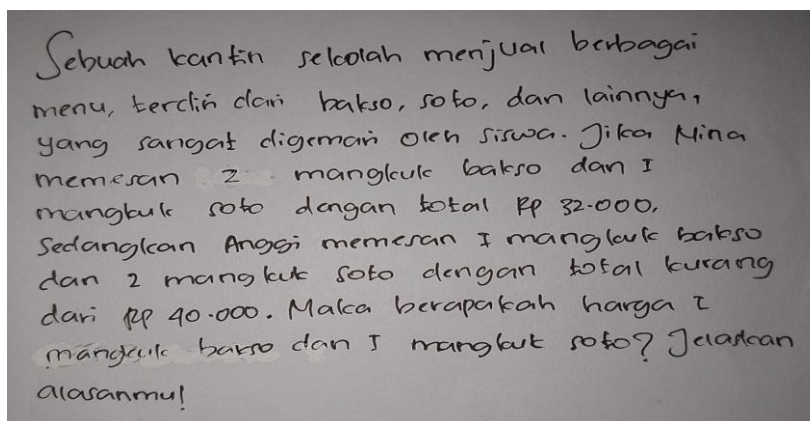 Sebuah kantin sekolah menjual berbagai
menu, terdiri dari bakso, soto, dan lainnya,
yang sangat digemari oleh siswa. Jika Nina
memesan 2 mangkuk bakso dan I
mangkuk soto dengan total Rp 32.000,
Sedangkan Anggi memesan I mangkuk bakso
dan 2 mangkuk soto dengan total kurang
dari Rp 40.000. Maka berapakah harga I
mangkuk bakso dan I mangkuk soto? Jelaskan
alasanmu!